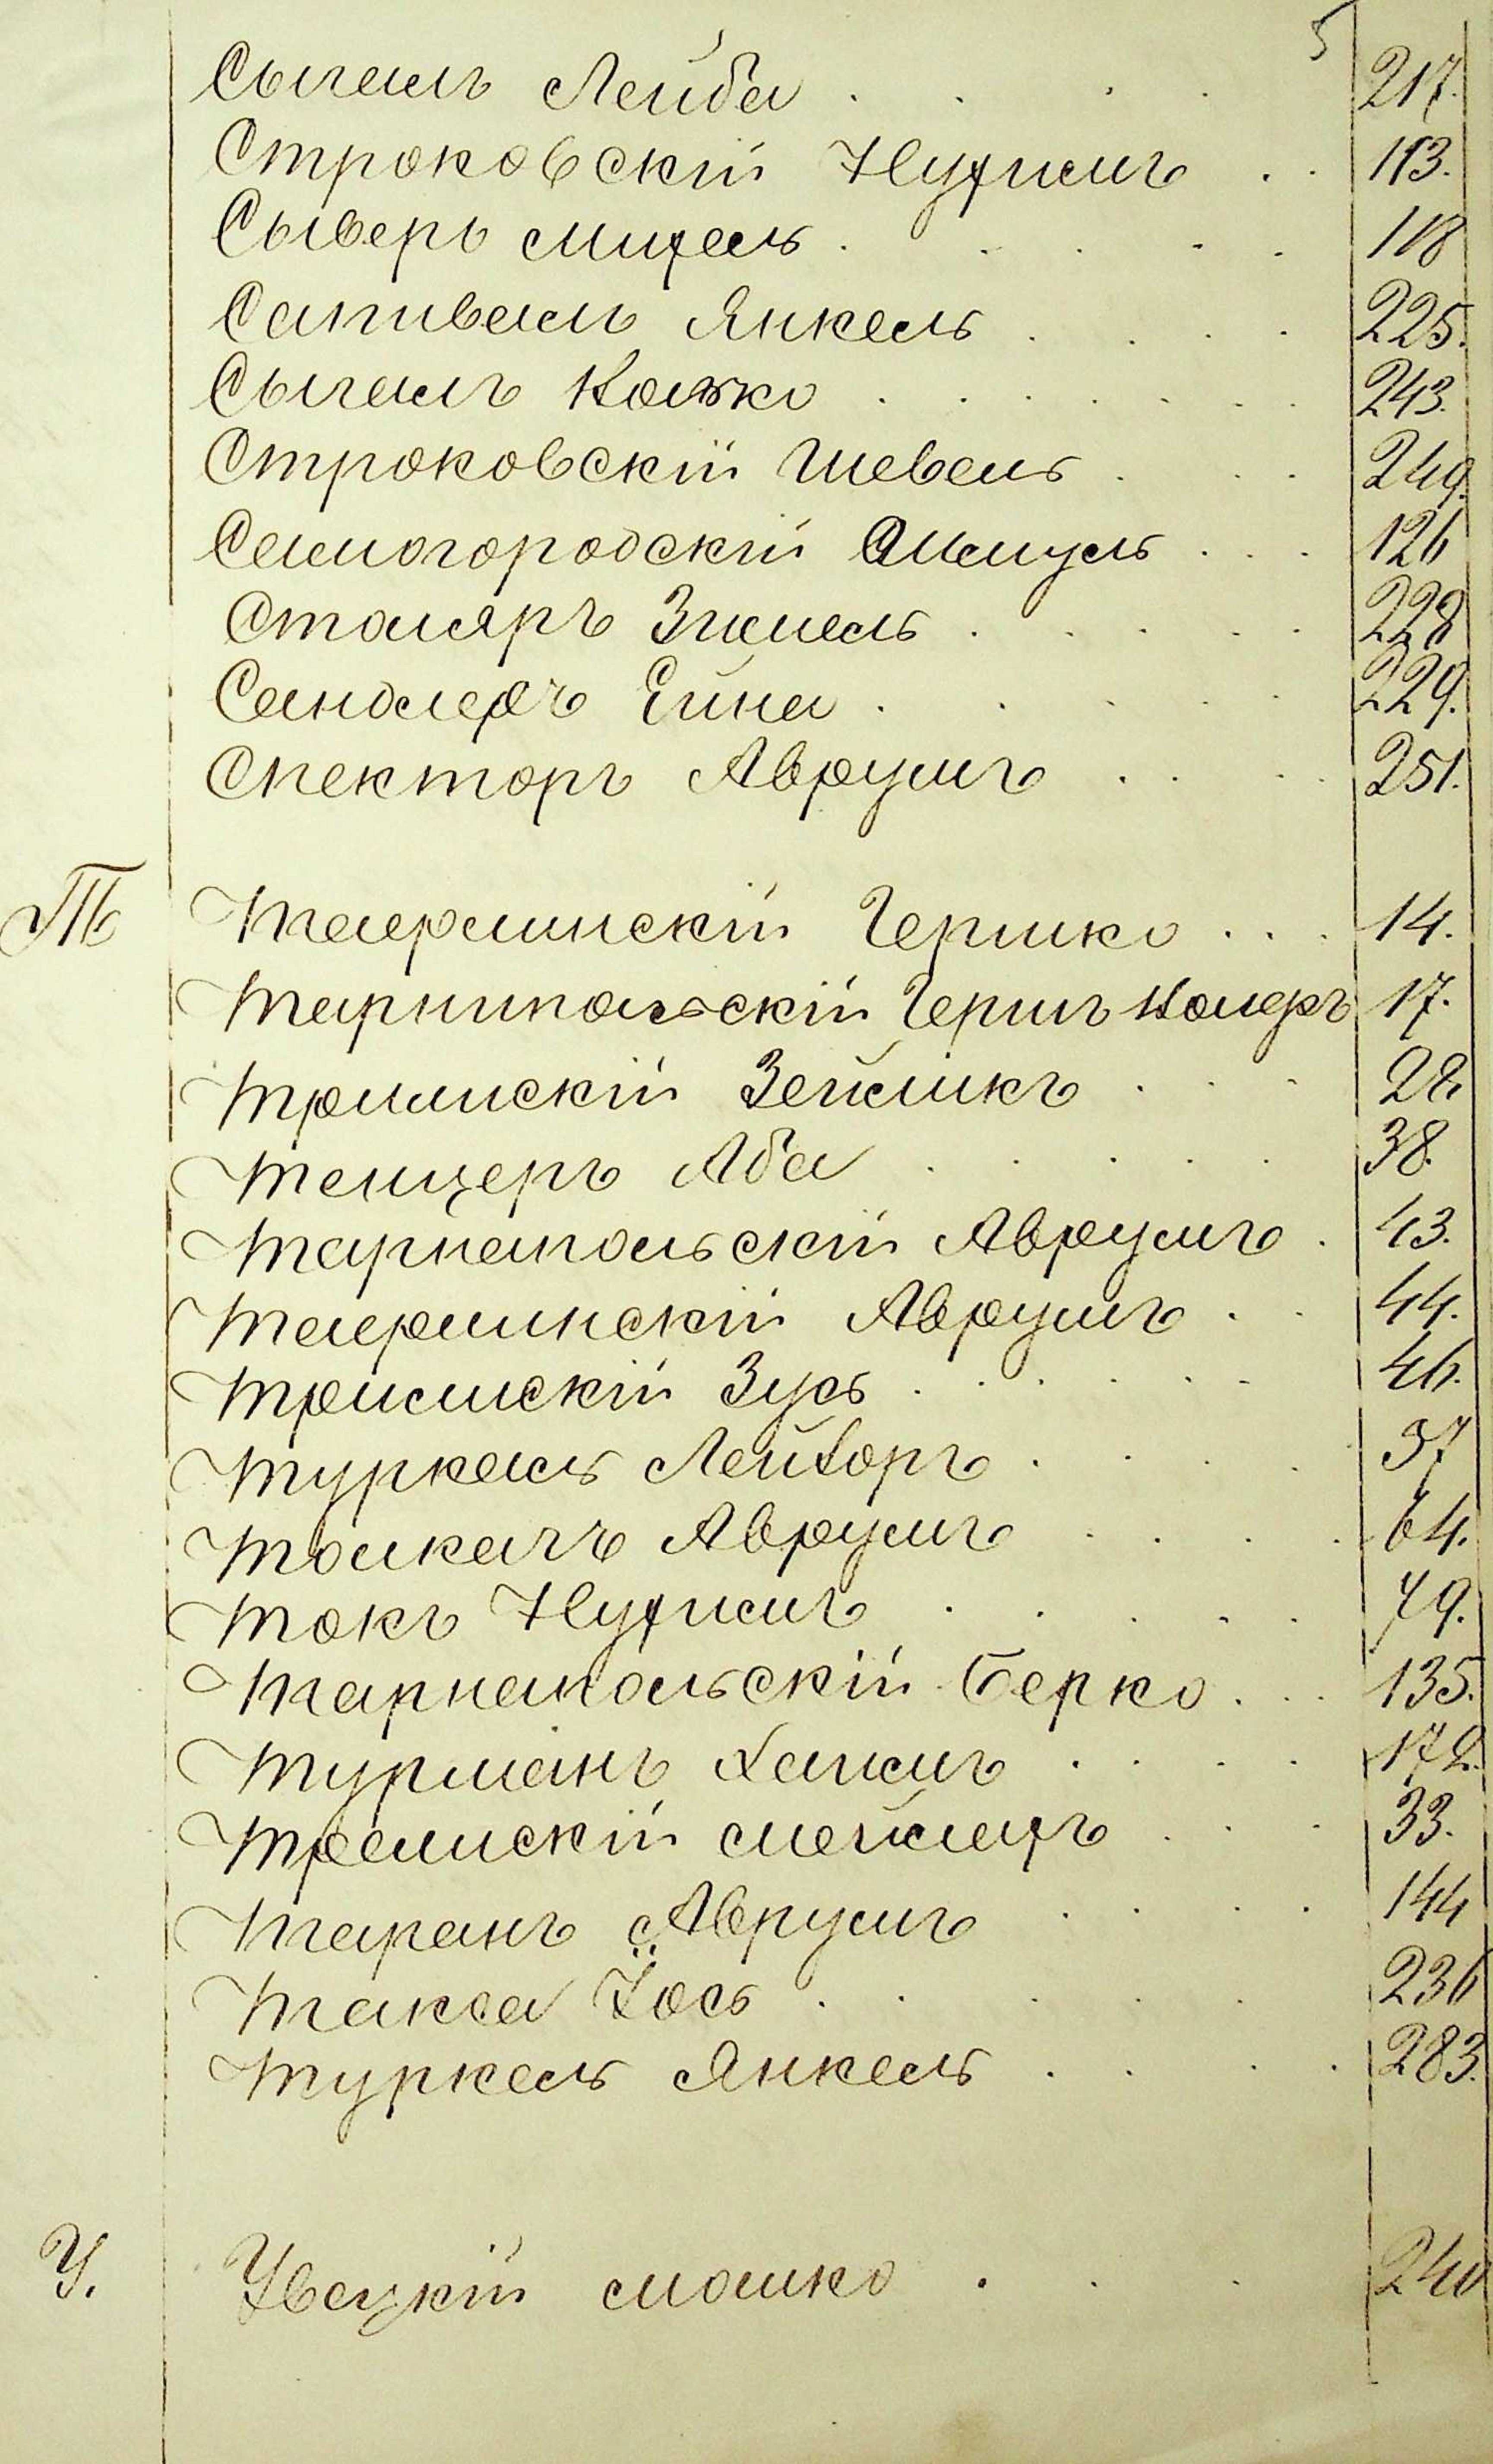 5
Сыгалъ Лейба . . . . 217.
Строковскій Нухимъ . . 113.
Сыверъ Михель . . . . 118
Сапиваль Янкель . . . . 225.
Сыгалъ Іойко . . . . . . . 243.
Строковскій Шевель . . . 249.
Самогородскій Шмуль . . . 126
Столяръ Зисель . . . . . 228
Сандлеръ Ейна . . . . . 229.
Спекторъ Аврумъ . . . . 251.
Т Таерлинскій Гершко . . . 14.
Тарнипольскій Гершъ 17.
Трилискій Зейликъ . . . 28
Тенцеръ Аба . . . . . 38.
Тарнапольскій Аврумъ . 43.
Таерлинскій Аврумъ . . 44.
Трилискій Зусь . . . . . . 46.
Туркель Лейзоръ . . . . 57
Толкачъ Аврумъ . . . . 64.
Токъ Нухимъ . . . . . 79.
Тарнапольскій Берко . . . 135.
Турманъ Хаимъ . . . . 172.
Трилискій Мейлехъ . . . 33.
Таранъ Аврумъ . . . . 144
Такса Іось . . . . . 236
Туркель Янкель . . . . 283.
У. Увецкій Мошко . . . 240